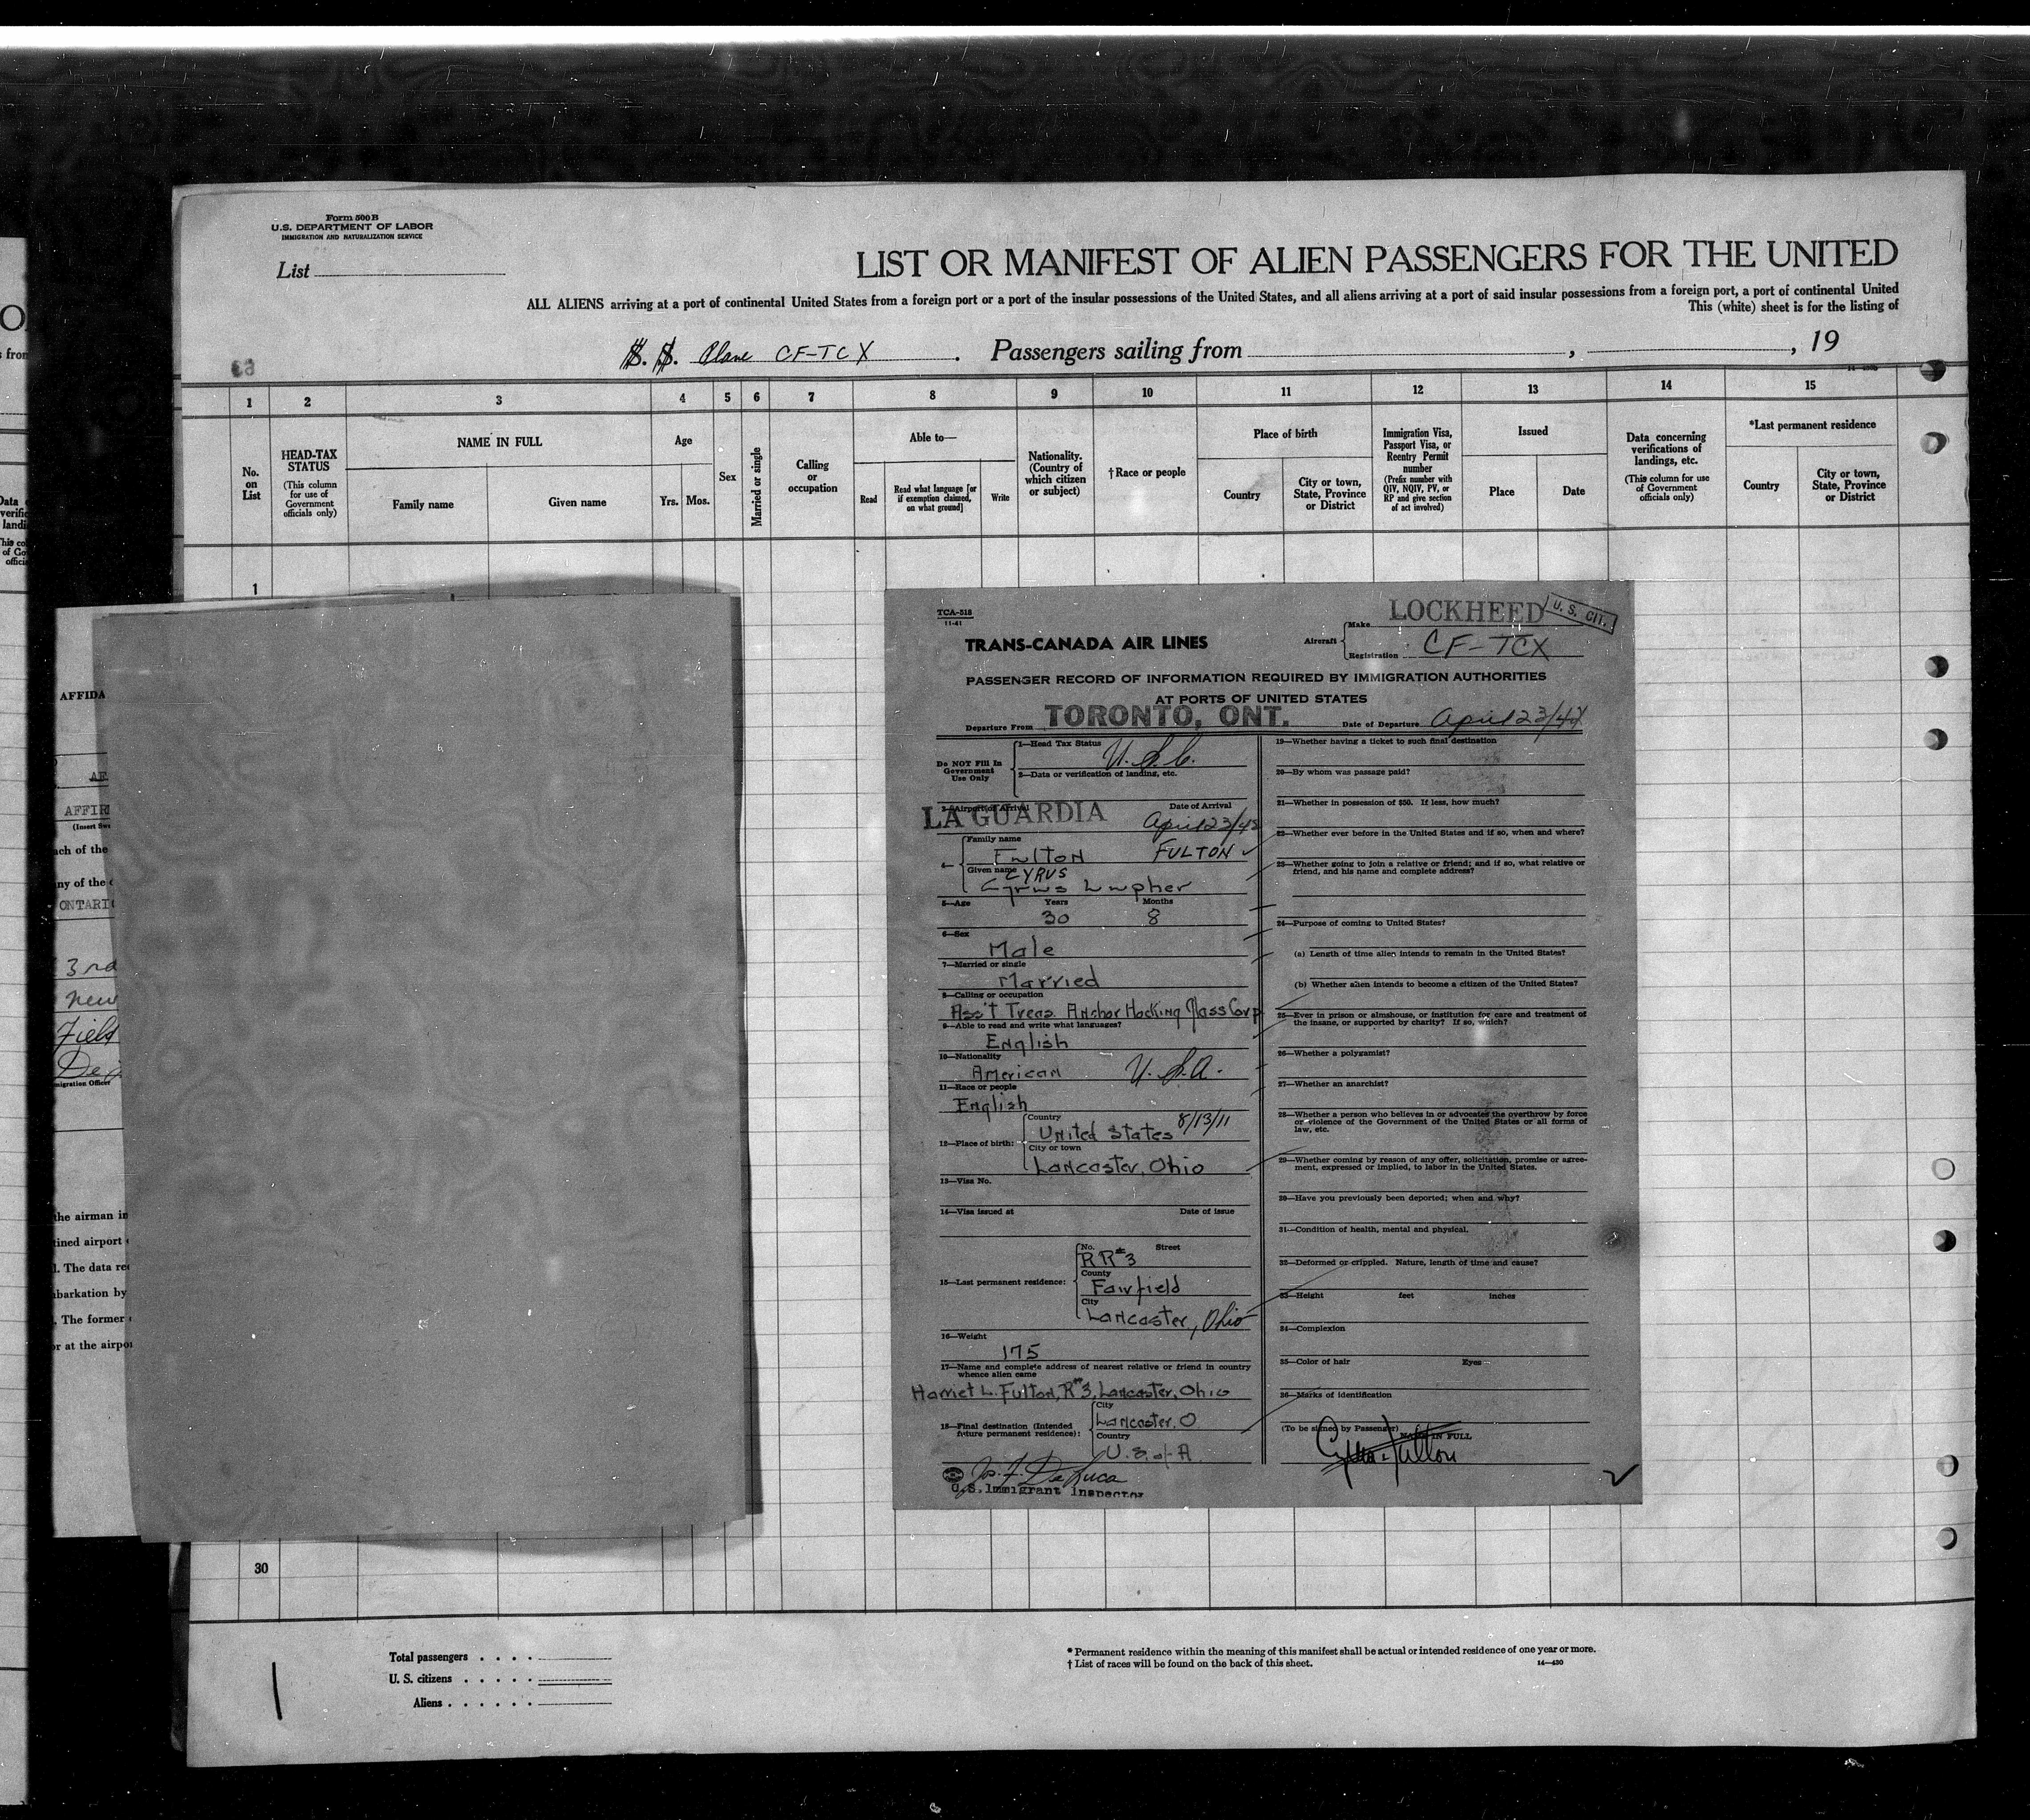 Form 500B
U.S. DEPARTMENT OF LABOR
IMMIGRATION AND NATURALIZATION SERVICE
List
LIST OR MANIFEST OF ALIEN PASSENGERS FOR THE UNITED
ALL ALIENS arriving at a port of continental United States from a foreign port or a port of the insular possessions of the United States, and all aliens arriving at a port of said insular possessions from a foreign port, a port of continental United
This (white) sheet is for the listing of
S. S. Plane CF-TCX . Passengers sailing from , , 19
1 2 3 4 5 6 7 8 9 10 11 12 13 14 15
No. on List
HEAD-TAX STATUS
(This column for use of Government officials only)
NAME IN FULL
Family name
Given name
Age
Yrs. Mos.
Sex
Married or single
Calling or occupation
Able to—
Read
Read what language [or if exemption claimed, on what ground]
Write
Nationality. (Country of which citizen or subject)
†Race or people
Place of birth
Country
City or town, State, Province or District
Immigration Visa, Passport Visa, or Reentry Permit number
(Prefix number with QIV, NQIV, PV, or RP and give section of act involved)
Issued
Place
Date
Data concerning verifications of landings, etc.
(This column for use of Government officials only)
*Last permanent residence
Country
City or town, State, Province or District
1
AFFIDA
AFFIR
(Insert
ach of the
ny of the
ONTARI
3rd
new
Field
De
migration Officer
the airman in
tined airport
. The data re
barkation by
. The former
or at the airpo
TCA-518
11-41
TRANS-CANADA AIR LINES
Aircraft
Make LOCKHEED
U. S. CIT.
Registration CF-TCX
PASSENGER RECORD OF INFORMATION REQUIRED BY IMMIGRATION AUTHORITIES
AT PORTS OF UNITED STATES
Departure From TORONTO, ONT. Date of Departure April 23/42
Do NOT Fill In Government Use Only
1—Head Tax Status U.S.C.
2—Data or verification of landing, etc.
3—Airport of Arrival Date of Arrival
LA GUARDIA April 23/42
4— Family name
Fulton FULTON
Given name CYRUS
Cyrus Lupher
5—Age Years Months
30 8
6—Sex
Male
7—Married or single
Married
8—Calling or occupation
Ass't Treas. Anchor Hocking Glass Corp
9—Able to read and write what languages?
English
10—Nationality
American U.S.A.
11—Race or people
English
12—Place of birth:
Country
United States 8/13/11
City or town
Lancaster, Ohio
13—Visa No.
14—Visa issued at Date of issue
15—Last permanent residence:
No. Street
RR#3
County
Fairfield
City
Lancaster, Ohio
16—Weight
175
17—Name and complete address of nearest relative or friend in country
whence alien came
Harriet L. Fulton, R#3, Lancaster, Ohio
18—Final destination (Intended future permanent residence):
City
Lancaster, O
Country
U.S. of A
Jos. F. DeLuca
U.S. Immigrant Inspector
19—Whether having a ticket to such final destination
20—By whom was passage paid?
21—Whether in possession of $50. If less, how much?
22—Whether ever before in the United States and if so, when and where?
23—Whether going to join a relative or friend; and if so, what relative or
friend, and his name and complete address?
24—Purpose of coming to United States?
(a) Length of time alien intends to remain in the United States?
(b) Whether alien intends to become a citizen of the United States?
25—Ever in prison or almshouse, or institution for care and treatment of
the insane, or supported by charity? If so, which?
26—Whether a polygamist?
27—Whether an anarchist?
28—Whether a person who believes in or advocates the overthrow by force
or violence of the Government of the United States or all forms of
law, etc.
29—Whether coming by reason of any offer, solicitation, promise or agree-
ment, expressed or implied, to labor in the United States.
30—Have you previously been deported; when and why?
31—Condition of health, mental and physical.
32—Deformed or crippled. Nature, length of time and cause?
33—Height feet inches
34—Complexion
35—Color of hair Eyes
36—Marks of identification
(To be signed by Passenger) NAME IN FULL
Cyrus Fulton
30
Total passengers
U. S. citizens
Aliens
* Permanent residence within the meaning of this manifest shall be actual or intended residence of one year or more.
† List of races will be found on the back of this sheet.
14—430